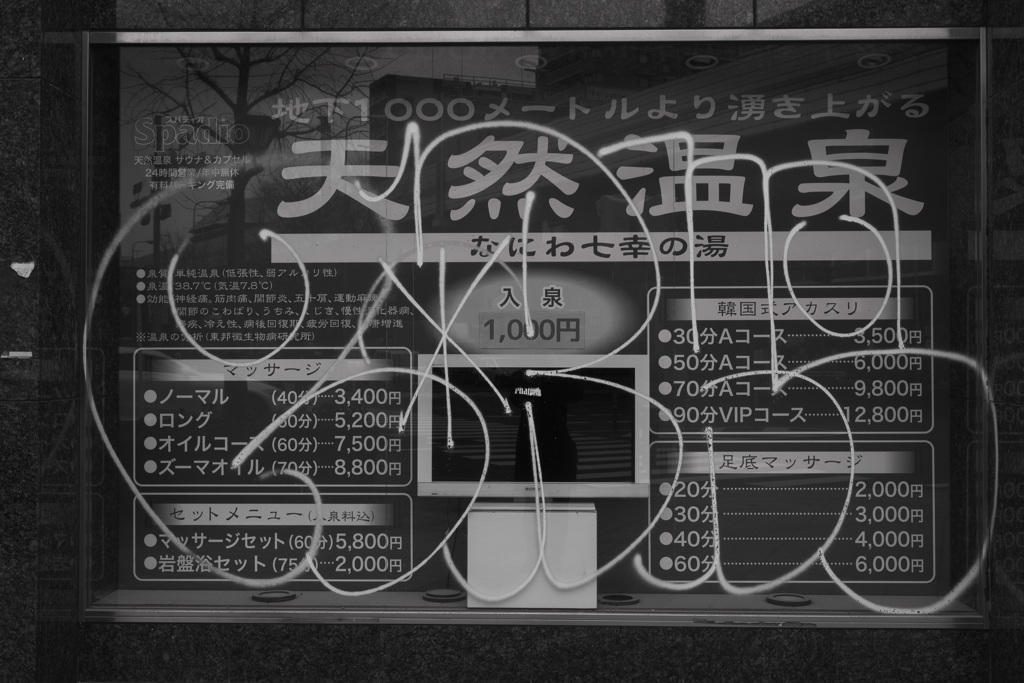 地下1000メートルより湧き上がる
スパディオ
Spadio
天然温泉 サウナ&カプセル
24時間営業/年中無休
有料パーキング完備
天然温泉
なにわ七幸の湯
●泉質 単純温泉(低張性、弱アルカリ性)
●泉温 38.7℃(気温7.8℃)
●効能 神経痛、筋肉痛、関節炎、五十肩、運動麻痺、
関節のこわばり、うちみ、くじき、慢性消化器病、
冷え性、病後回復期、疲労回復、健康増進
※温泉の分析(東邦微生物病研究所)
入泉
1,000円
マッサージ
●ノーマル (40分)…3,400円
●ロング (60分)…5,200円
●オイルコース (60分)…7,500円
●ズーマオイル (70分)…8,800円
セットメニュー(入泉料込)
●マッサージセット(60分)5,800円
●岩盤浴セット(75分)…2,000円
韓国式アカスリ
●30分Aコース…3,500円
●50分Aコース…6,000円
●70分Aコース…9,800円
●90分VIPコース…12,800円
足底マッサージ
●20分…2,000円
●30分…3,000円
●40分…4,000円
●60分…6,000円